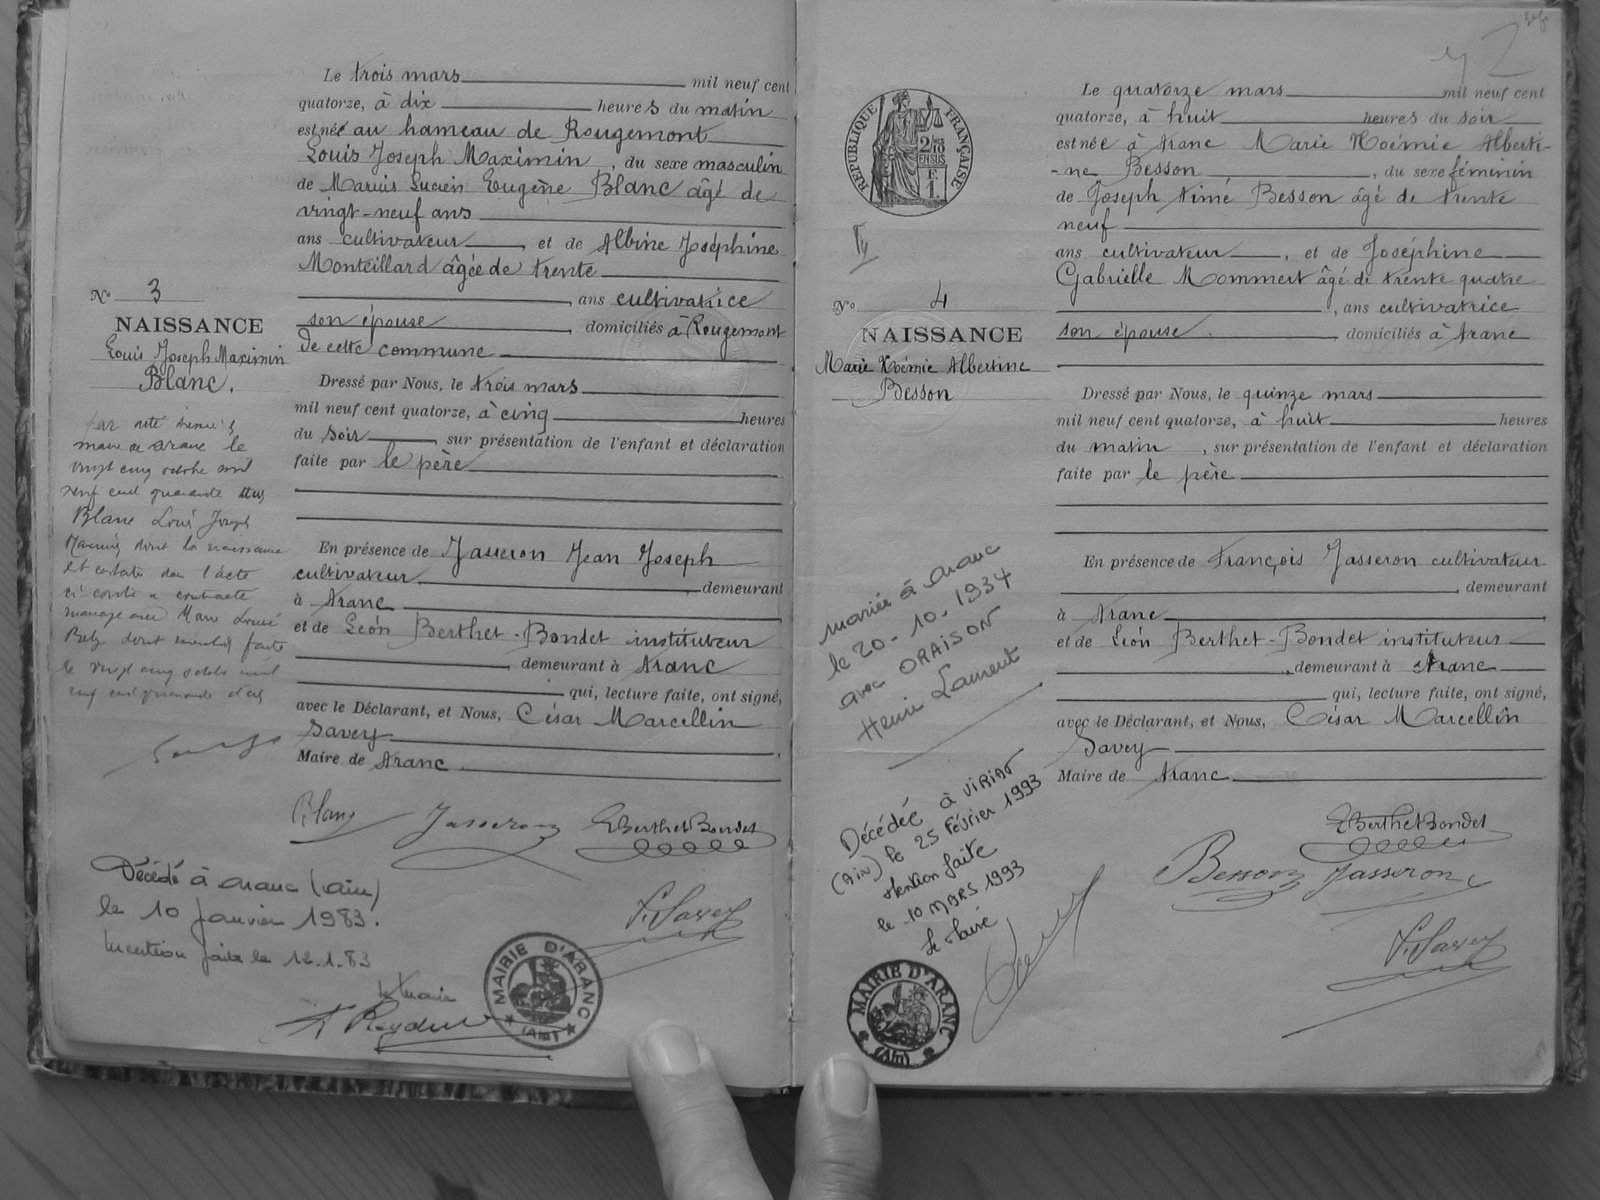 Le trois mars mil neuf cent
quatorze, à dix heures du matin
est né au hameau de Rougemont
Louis Joseph Maximin, du sexe masculin
de Marius Lucien Eugène Blanc âgé de
vingt-neuf ans
ans cultivateur, et de Albine Joséphine
Monteillard âgée de trente
, ans cultivatrice
son épouse, domiciliés à Rougemont
de cette commune
No 3
NAISSANCE
Louis Joseph Maximin
Blanc.
Dressé par Nous, le trois mars
mil neuf cent quatorze, à cinq heures
du soir, sur présentation de l'enfant et déclaration
faite par le père
En présence de Jasseron Jean Joseph
cultivateur, demeurant
à Aranc
et de Léon Berthet-Bondet instituteur
, demeurant à Aranc
qui, lecture faite, ont signé,
avec le Déclarant, et Nous, César Marcellin
Savey
Maire de Aranc
maire de Aranc le
vingt cinq octobre mil
neuf cent quarante
Blanc Louis Joseph
dont la naissance
est constatée dans l'acte
ci contre a contracté
mariage avec Marie Louise
dont mention faite
le vingt cinq octobre mil
neuf cent quarante
Blanc Jasseron LBerthetBondet
Savey
Décédé à Aranc (Ain)
le 10 Janvier 1983.
Mention faite le 12.1.83
Le Maire
MAIRIE D'ARANC
(Ain)
42
RÉPUBLIQUE FRANÇAISE
2/10
EN SUS
Le quatorze mars mil neuf cent
quatorze, à huit heures du soir
est née à Aranc Marie Noémie Alberti-
-ne Besson, du sexe féminin
de Joseph Aimé Besson âgé de trente
neuf
ans cultivateur, et de Joséphine
Gabrielle Mommert âgé de trente quatre
, ans cultivatrice
son épouse, domiciliés à Aranc
No 4
NAISSANCE
Marie Noémie Albertine
Besson
Dressé par Nous, le quinze mars
mil neuf cent quatorze, à huit heures
du matin, sur présentation de l'enfant et déclaration
faite par le père
En présence de François Jasseron cultivateur
, demeurant
à Aranc
et de Léon Berthet-Bondet instituteur
, demeurant à Aranc
qui, lecture faite, ont signé,
avec le Déclarant, et Nous, César Marcellin
Savey
Maire de Aranc
mariée à Aranc
le 20-10-1934
avec ORAISON
Henri Laurent
Décédée à VIRIAT
(Ain) le 25 Février 1993
Mention faite
le 10 MARS 1993
Le Maire
LBerthetBondet
Besson Jasseron
Savey
MAIRIE D'ARANC
(Ain)